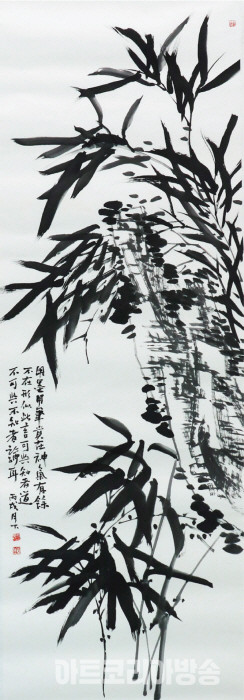 用墨用筆貴在神氣有餘
不在形似此言可與知者道
不可與不知者語耳 丙戌月下
아트코리아방송